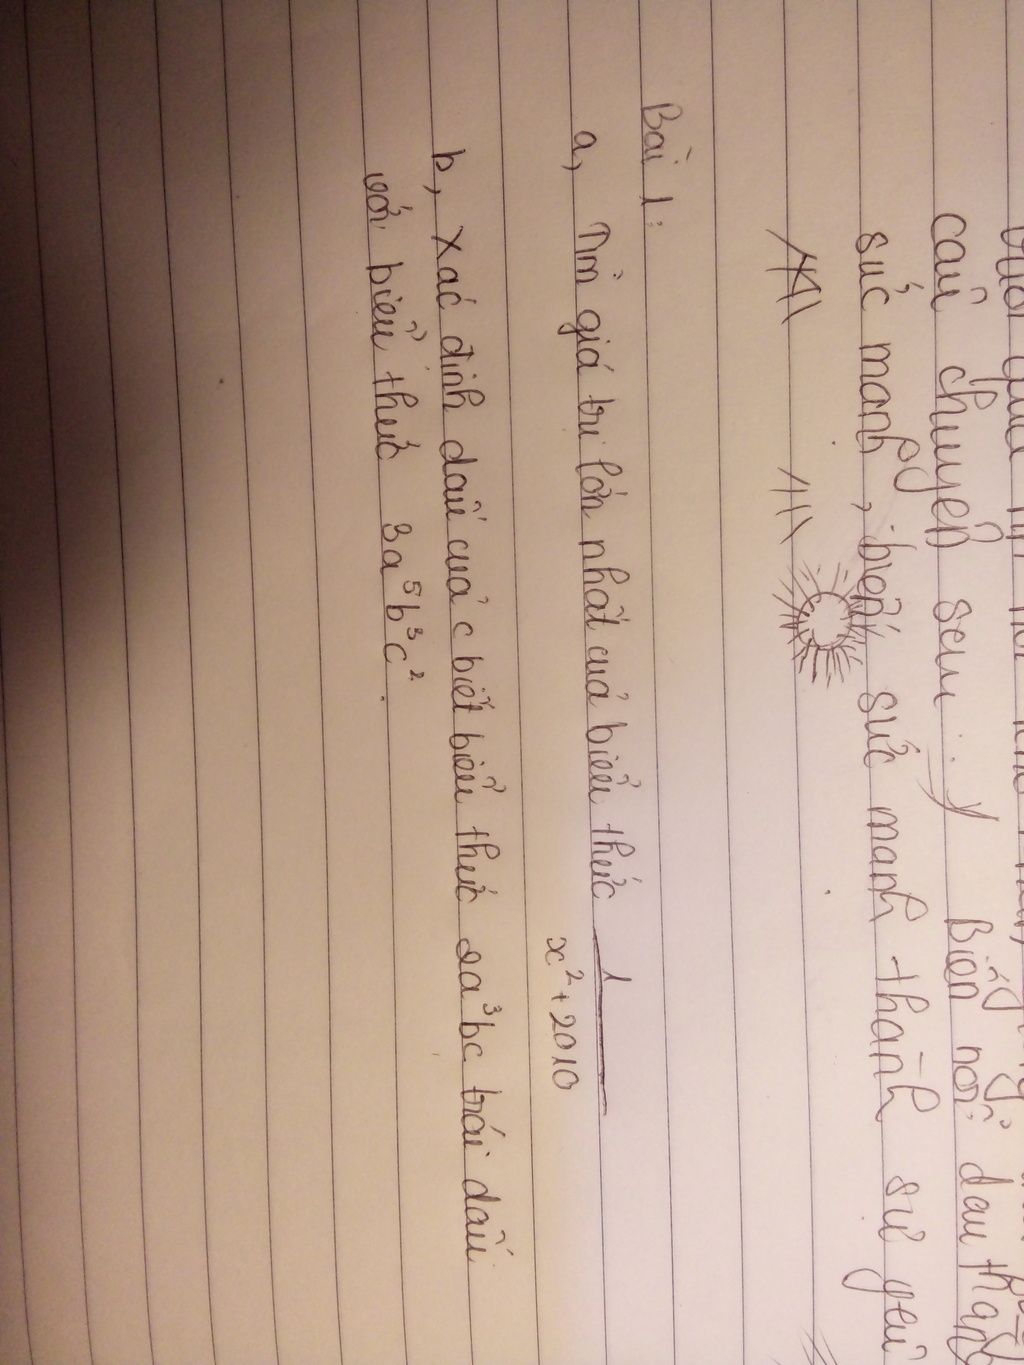 câu chuyện sau: Biến nỗi đau thành
sức mạnh, biến sức mạnh thành sự yếu
Bài 1:
a, Tìm giá trị lớn nhất của biểu thức 1/(x² + 2010)
b, Xác định dấu của c biết biểu thức 2a³bc trái dấu
với biểu thức 3a⁵b³c².